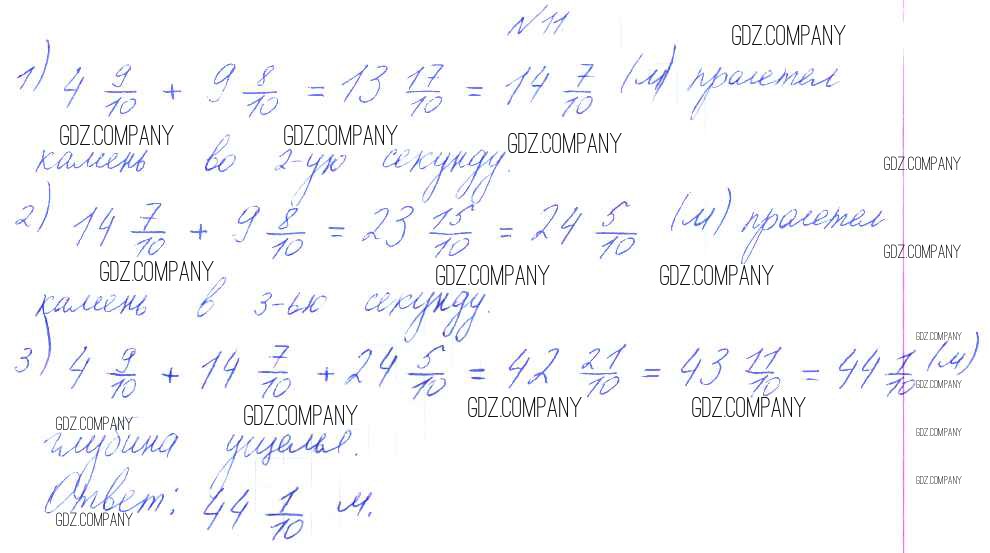 №11
GDZ.COMPANY
1) 4 9/10 + 9 8/10 = 13 17/10 = 14 7/10 (м) пролетел
GDZ.COMPANY GDZ.COMPANY GDZ.COMPANY
камень во 2-ую секунду.
GDZ.COMPANY
2) 14 7/10 + 9 8/10 = 23 15/10 = 24 5/10 (м) пролетел
GDZ.COMPANY
GDZ.COMPANY GDZ.COMPANY GDZ.COMPANY
камень в 3-ью секунду.
GDZ.COMPANY
3) 4 9/10 + 14 7/10 + 24 5/10 = 42 21/10 = 43 11/10 = 44 1/10 (м)
GDZ.COMPANY
GDZ.COMPANY GDZ.COMPANY GDZ.COMPANY GDZ.COMPANY
глубина ущелья.
GDZ.COMPANY
Ответ: 44 1/10 м.
GDZ.COMPANY
GDZ.COMPANY